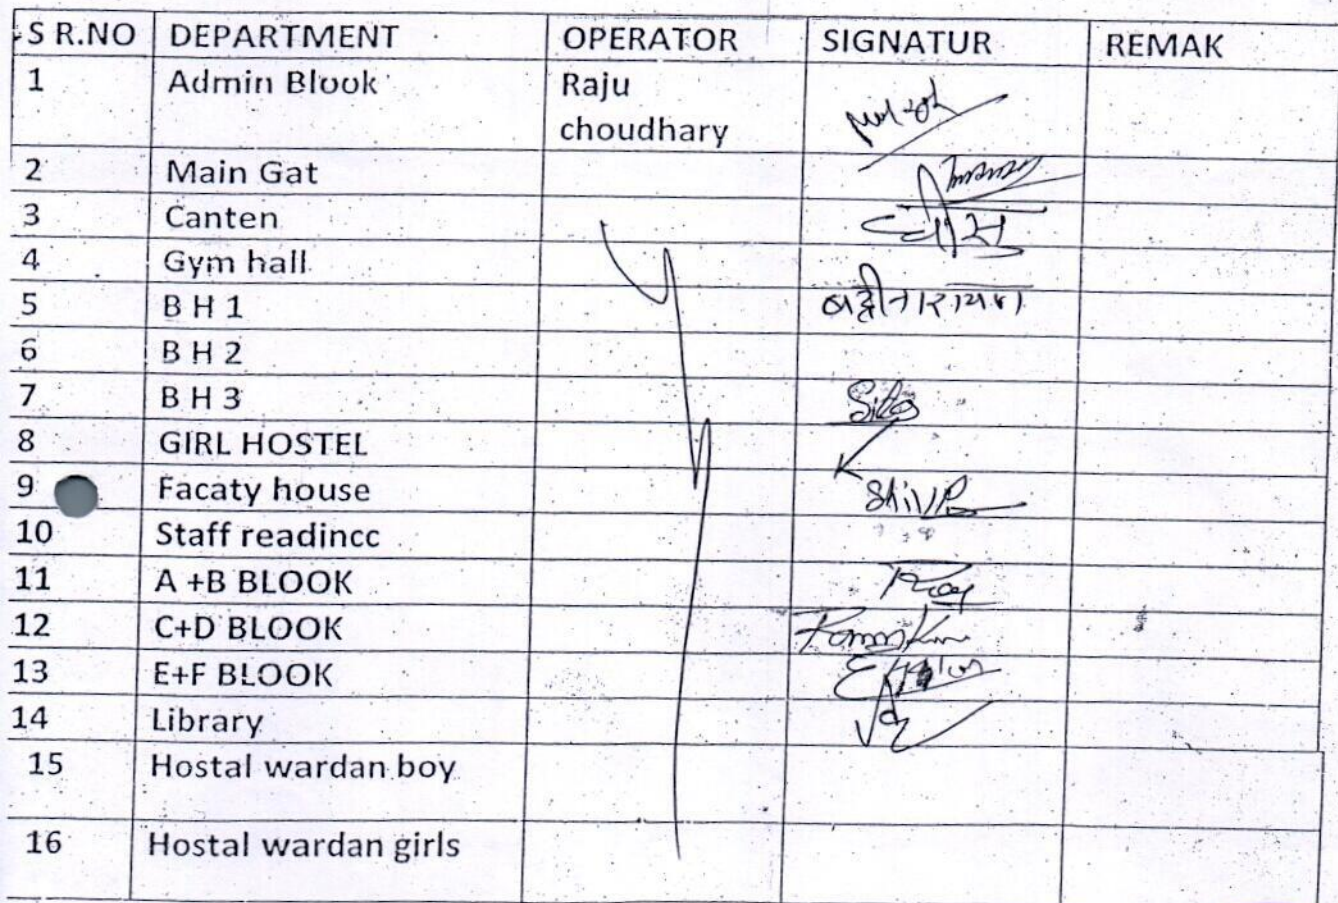 S R.NO DEPARTMENT OPERATOR SIGNATUR REMAK
1 Admin Blook Raju
choudhary
2 Main Gat
3 Canten
4 Gym hall
5 B H 1 बद्रीनारायण
6 B H 2
7 B H 3
8 GIRL HOSTEL
9 Facaty house
10 Staff readincc
11 A +B BLOOK
12 C+D BLOOK
13 E+F BLOOK
14 Library
15 Hostal wardan boy
16 Hostal wardan girls